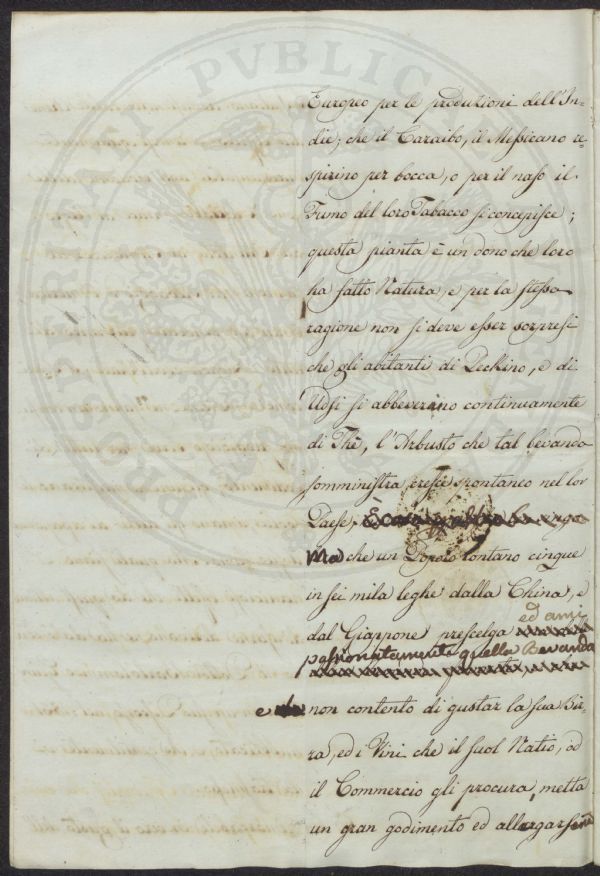 Europeo per le produzioni dell'In-
die, che il Caraibo, il Messicano re-
spirino per bocca, o per il naso il
Fumo del loro Tabacco si concepisce;
questa pianta è un dono che loro
ha fatto Natura, e per la stessa
ragione non si deve esser sorpresi
che gli abitanti di Peckino, e di
Udsi si abbeverino continuamente
di Thè, l'Arbusto che tal bevanda
somministra cresce spontaneo nel lor
Paese,
Ma che un Popolo lontano cinque
in sei mila leghe dalla China, e
ed ami
dal Giappone prescelga
passionatamente quella Bevanda
e non contento di gustar la sua Bir-
ra, ed i Vini che il suol Natio, od
il Commercio gli procura, metta
un gran godimento ed allargarsene